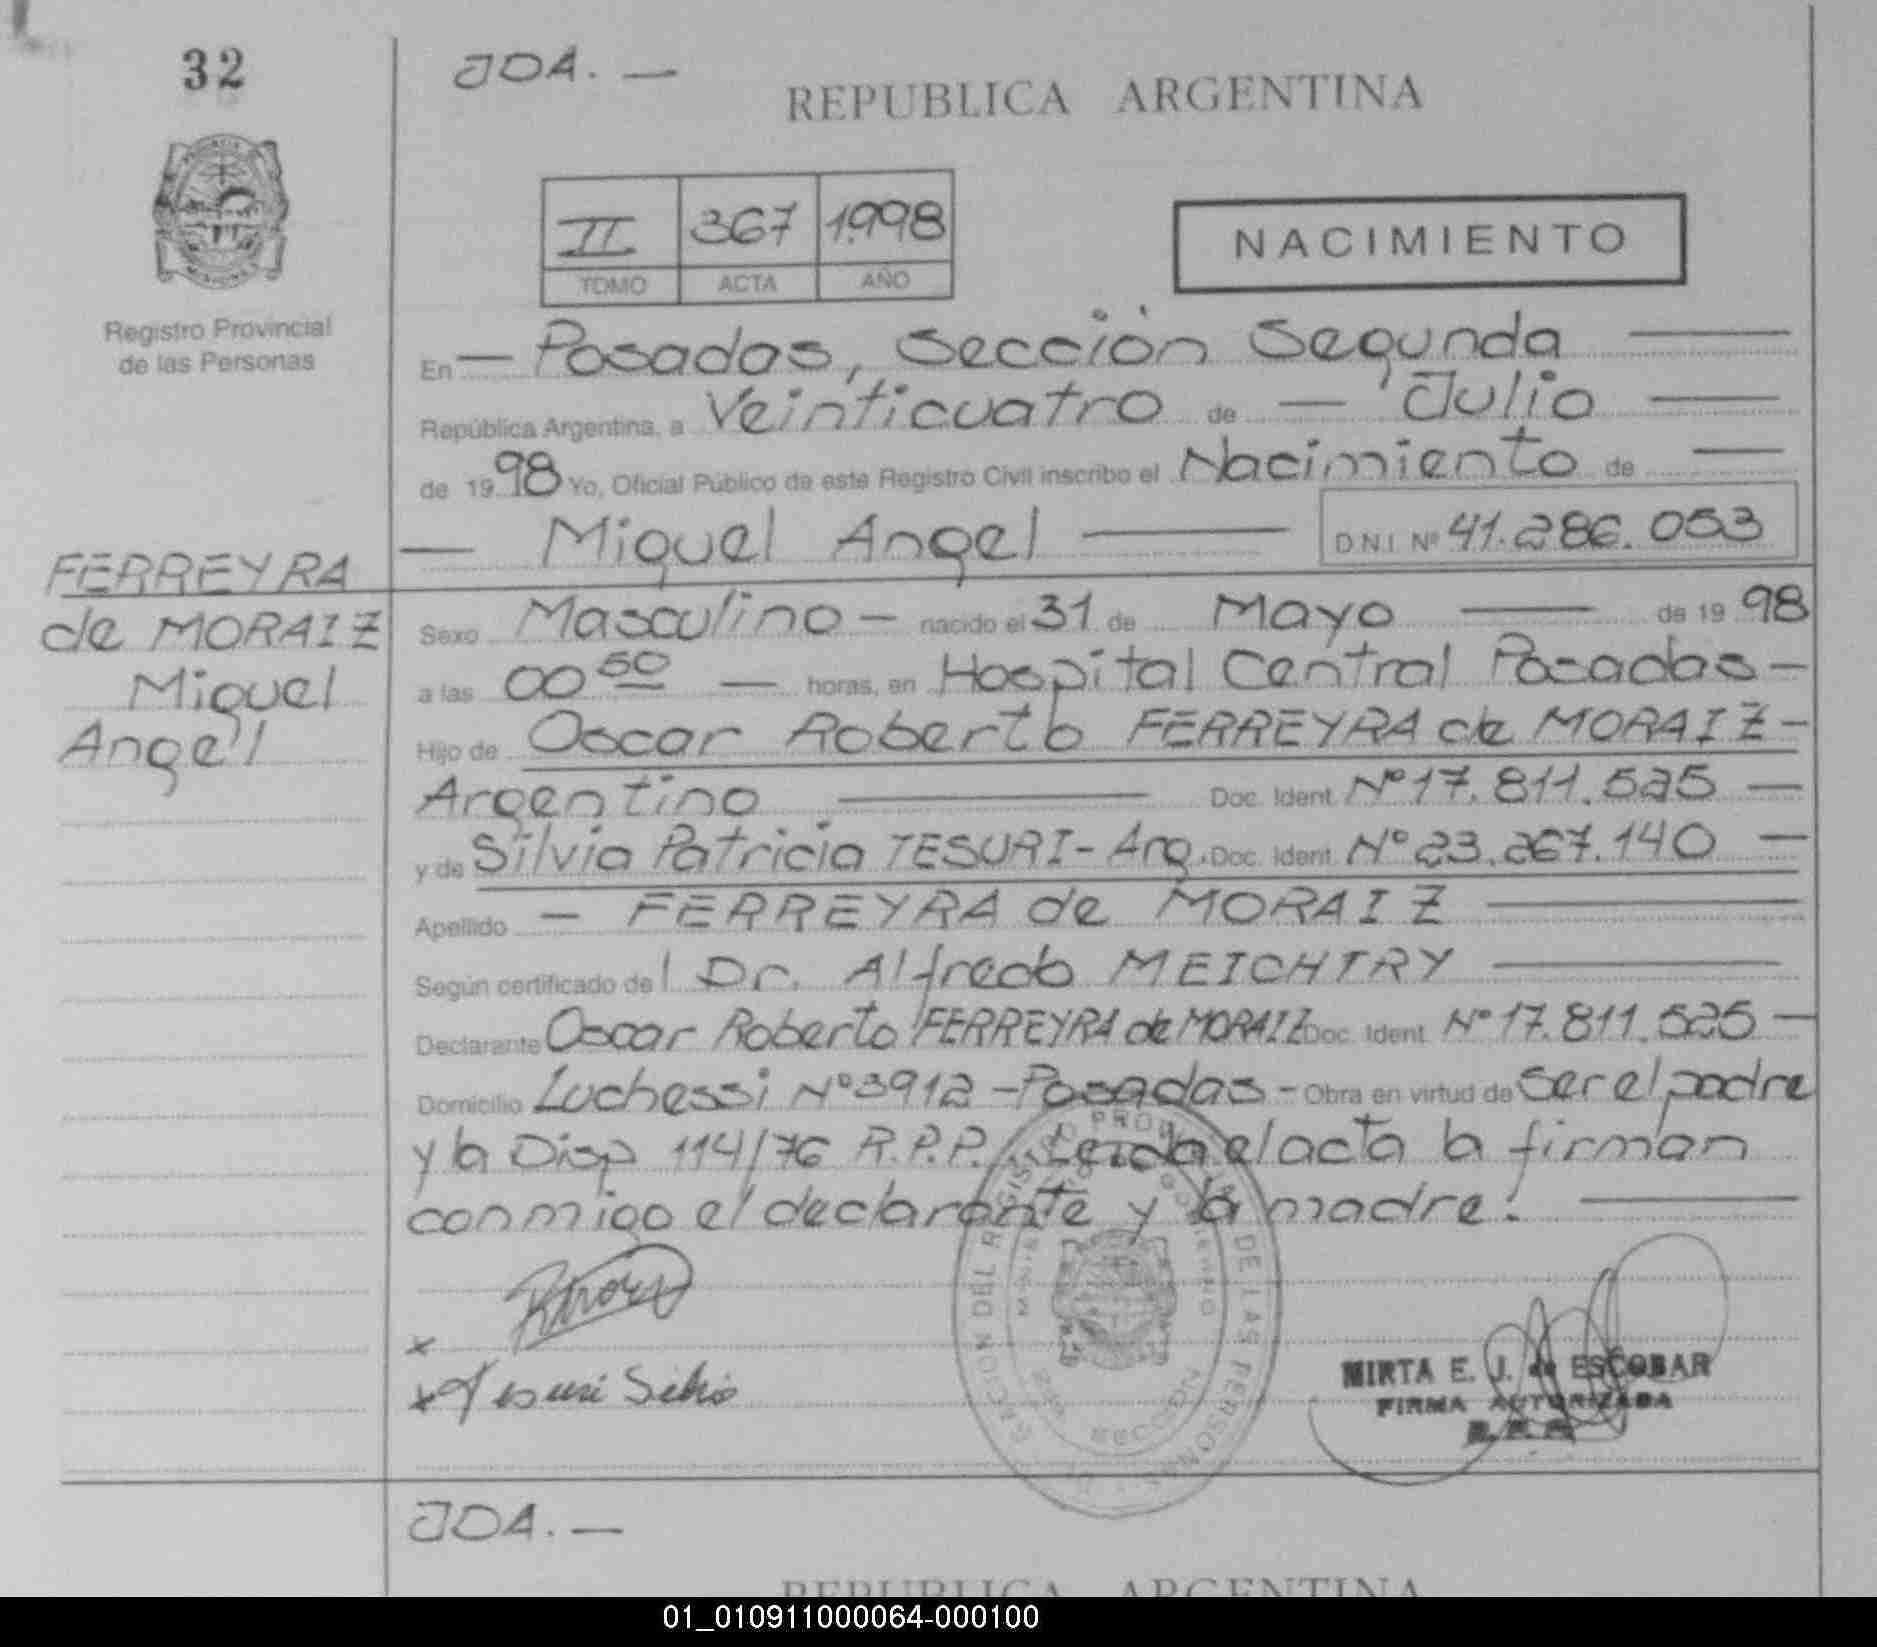 32
JOA. —
REPUBLICA ARGENTINA
II 367 1.998
TOMO ACTA AÑO
NACIMIENTO
Registro Provincial
de las Personas
En — Posadas, Sección Segunda —
República Argentina, a Veinticuatro de — Julio —
de 19 98 Yo, Oficial Público de este Registro Civil inscribo el Nacimiento de —
— Miguel Angel — D.N.I. Nº 41.286.053
FERREYRA
de MORAIZ
Miguel
Angel
Sexo Masculino — nacido el 31 de Mayo — de 19 98
a las 00 50 — horas, en Hospital Central Posadas —
Hijo de Oscar Roberto FERREYRA de MORAIZ —
Argentino — Doc. Ident. Nº 17.811.525 —
y de Silvia Patricia TESURI - Arg. Doc. Ident. Nº 23.267.140 —
Apellido — FERREYRA de MORAIZ —
Según certificado de l Dr. Alfredo MEICHTRY —
Declarante Oscar Roberto FERREYRA de MORAIZ Doc. Ident. Nº 17.811.525 —
Domicilio Luchessi Nº 3912 - Posadas - Obra en virtud de ser el padre
y la Disp 114/76 R.P.P. Leida el acta la firman
conmigo el declarante y la madre. —
x
x Tesuri Silvia
MINISTERIO GOBIERNO
2DA SECCION
MIRTA E. J. de ESCOBAR
FIRMA AUTORIZADA
JOA. —
REPUBLICA ARGENTINA
01_010911000064-000100